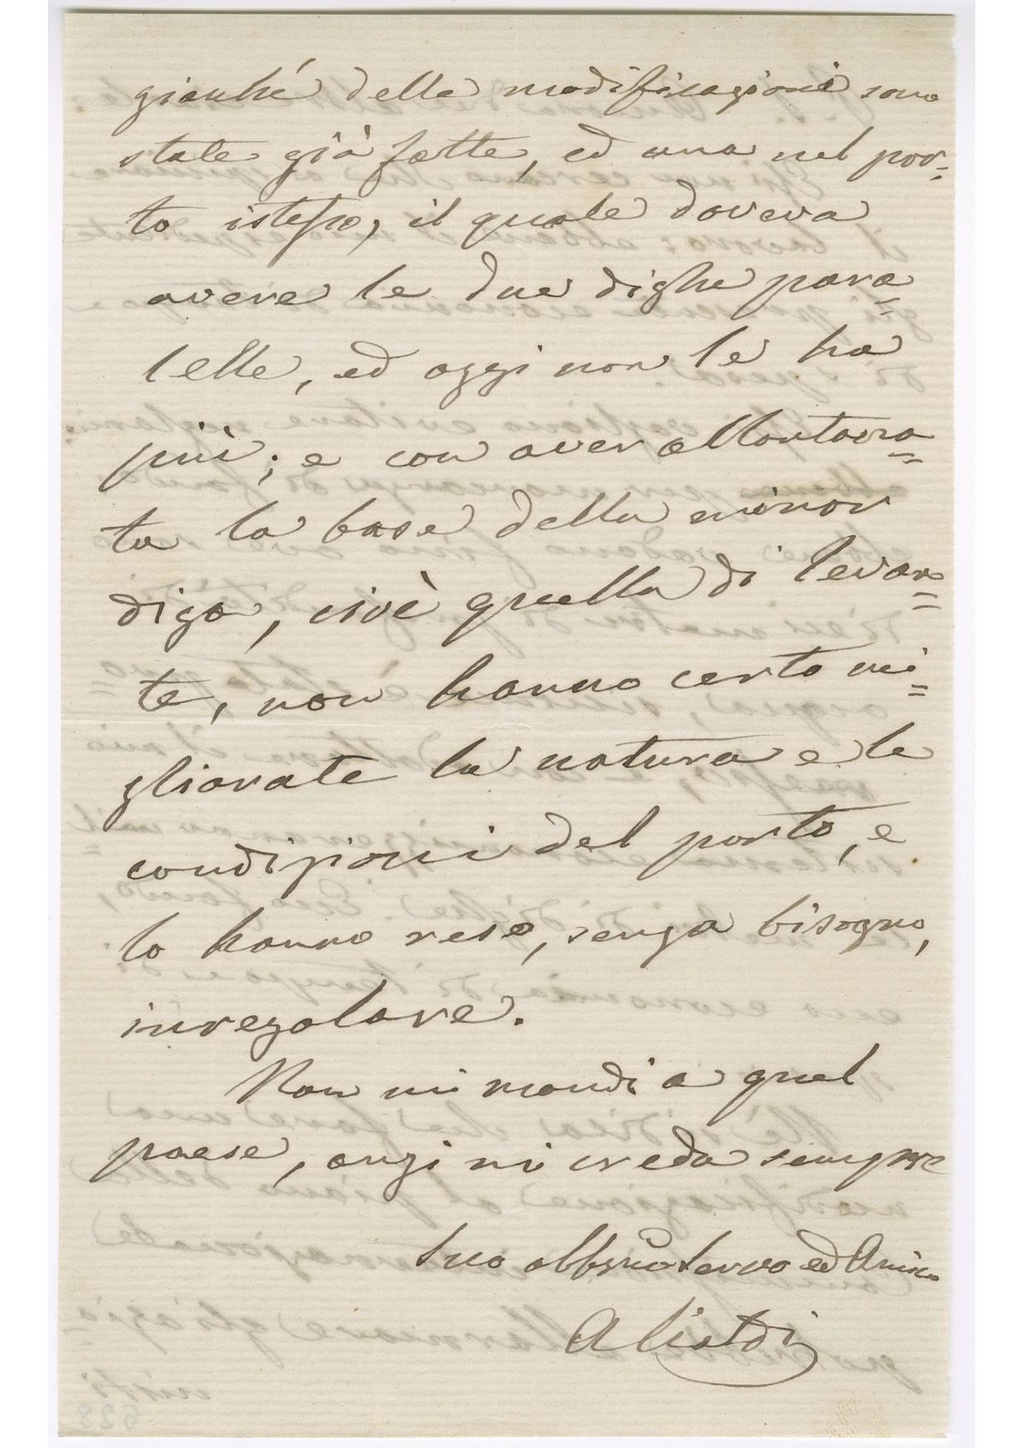 gianché delle modificazioni sono
state già fatte, ed una nel por=
to istesso, il quale doveva
avere le due dighe para=
lelle, ed oggi non le ha
più; e con aver allontana=
ta la base della minor
diga, cioè quella di levan=
te, non hanno certo mi=
gliorate la natura e le
condizioni del porto, e
lo hanno reso, senza bisogno,
irregolare.
Non mi mandi a quel
paese, anzi mi creda sempre
Suo obbmo Servo ed Amico
A Cialdi